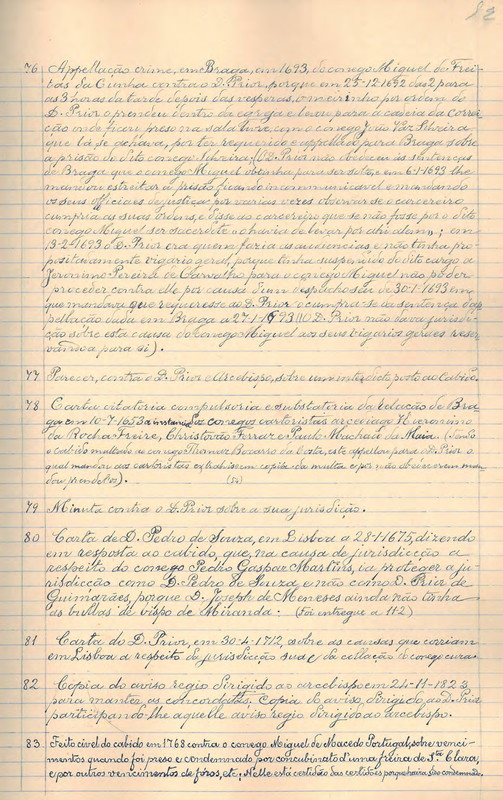 82
76 Appellação crime, em Braga, em 1693, do conego Miguel de Frei-
tas da Cunha contra o D. Prior, porque em 25-12-1692 das 2 para
as 3 horas da tarde depois das vesperas, o meirinho por ordem do
D. Prior o prendeu dentro da egreja e levou para a cadeia da Correi-
ção onde ficou preso na sala livre, com o conego João Vaz Silveira
que lá se achava, por ter requerido e appellado para Braga sobre
a prisão do dito conego Silveira; (O D. Prior não obedeceu ás sentenças
de Braga que o conego Miguel obtinha para ser solto, e em 6-1-1693 lhe
mandou estreitar a prisão ficando incommunicavel e mandando
os seus officiaes de justiça por varias vezes observar se o carcereiro
cumpria as suas ordens, e disse ao carcereiro que se não fosse por o dito
conego Miguel ser sacerdote «o havia de levar por ahi alem»; em
13-2-1693 o D. Prior era quem fazia as audiencias, e não tinha pro-
positamente vigario geral, porque tinha suspendido do dito cargo a
Jeronimo Pereira de Carvalho para o conego Miguel não poder
proceder contra elle por causa d'um despacho seu de 30-1-1693 em
que mandava que requeresse ao D. Prior o cumpra-se da sentença d'ap-
pellação dada em Braga a 27-1-1693 (O D. Prior não dava jurisdic-
ção sobre esta causa do conego Miguel aos seus vigarios geraes reser-
vando-a para si).
77 Parecer, contra o D. Prior e Arcebispo, sobre um interdicto posto ao Cabido.
78 Carta citatoria compulsoria e da Relação de Bra-
ga em 10-7-1653 a instancia dos conegos cartoristas arcediago Hieronimo
da Rocha Freire, Christovão Ferraz e Paulo Machado da Maia. (Tendo
o Cabido multado ao conego Thomaz Bocarro da Costa, este appellou para o D. Prior o
qual mandou aos cartoristas extrahissem copia da multa e por não obedecerem man-
dou prendel-os).
79 Minuta contra o D. Prior sobre a sua jurisdicção.
80 Carta de D. Pedro de Souza, em Lisboa a 28-1-1675, dizendo
em resposta ao cabido, que, na causa de jurisdicção a
respeito do conego Pedro Gaspar Martins, ia proteger a ju-
risdicção como D. Pedro de Souza, e não como D. Prior de
Guimarães, porque D. Joseph de Meneses ainda não tinha
as bullas de bispo de Miranda. (Foi entregue a 11-2)
81 Carta do D. Prior, em 30-4-1712, sobre as causas que corriam
em Lisboa a respeito da jurisdicção sua e da collação do conego cura.
82 Copia do aviso regio dirigido ao arcebispo em 24-11-1823
para manter as concordatas. Copia do aviso dirigido ao D. Prior
participando-lhe aquelle aviso regio dirigido ao arcebispo.
83 Feito civel do cabido em 1768 contra o conego Miguel de Macedo Portugal, sobre venci-
mentos quando foi preso e condemnado por concubinato d'uma freira de Sta Clara,
e por outros vencimentos de foros, etc; N'elle está certidão das certidões porque havia sido condemnado.